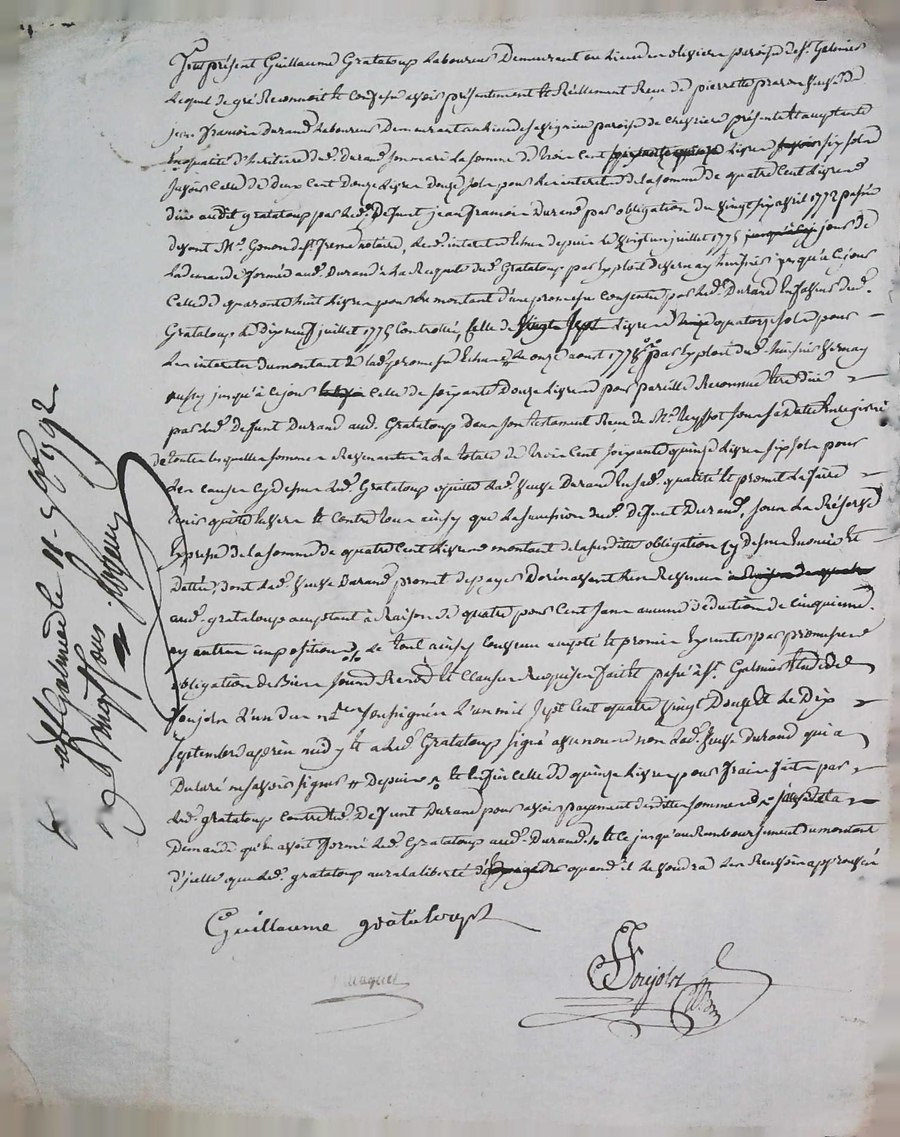 Fut présent Guillaume Grataloup Laboureur Demeurant au Lieu des oliviere paroisse de St. Galmier
Lequel de gré Reconnoit et Confesse avoir présentement et Réellement Reçu de pierrette veuve de
jean François Durand Laboureur Demeurant au Lieu de paroisse de chevriere présente et acceptante
En qualité d'heritiere dud. Durand son mary La somme de trois Cent Livres six sols
Sçavoir Celle de deux Cent Douze Livres Douze sols pour Les interets de la somme de quatre Cent Livres
düe audit grataloup par Led. Defunt jean François Durand par obligation du vingt six avril 1772 passée
devant Me. notaire, Led. interets Echus depuis le vingt un juillet 1775 jour de
La demande formée aud. Durand à La Requete dud. Grataloup par Exploit de Vernay huissier jusqu'à Ce jour
Celle de quarante huit Livres pour le montant d'une promesse Consentie par Led. Durand En faveur dud.
Grataloup Le Dix neuf juillet 1775 Controllée, Celle de Vingt Sept Livres quatorze sols pour
Les interets du montant de lad. promesse Echus Le onze aout 1778 par Exploit dud. huissier Vernay
aussy jusqu'à Ce jour Celle de soixante Douze Livres pour pareille Reconnue Etre düe
par Led. Defunt Durand aud. Grataloup Dans son testament Reçu de Me. sous sa date Enregistré
de toutes Lesquelles sommes Revenantes à La totale de trois Cent soixante quinze Livres six sols pour
Les Causes Cy dessus Led. Grataloup quitte Lad. veuve Durand En sad. qualité et promet La faire
tenir quitte Envers et Contre tous ainsy que La succession dud. Defunt Durand, sous La Réserve
Expresse de la somme de quatre Cent Livres montant de la susditte obligation Cy dessus Enoncée Et
dattée, dont Lad. Veuve Durand promet de payer Dorénavant Les Revenus
aud. grataloup acceptant à Raison de quatre pour Cent sans aucune déduction de Cinquieme
ny autres impositions Le tout ainsy Convenu accepté et promis Executer par promesse
obligation de Biens soumis. Renonc. et Clauses Requises fait et passé à St. Galmier Etude de
Soujolx l'un des nres soussignés L'an mil sept Cent quatre vingt Douze Et Le Dix
septembre après midy Et a Led. Grataloup signé avec nous non Lad. Veuve Durand qui a
Déclaré ne sçavoir signer # Depuis # Et Enfin Celle de quinze Livres pour frais faits par
Led. grataloup Contre Led. Defunt Durand pour avoir payement desdittes sommes
Demande qu'En avoit formé Led. Grataloup aud. Durand # Et Ce jusqu'au Remboursement du montant
d'jcelle que Led. grataloup aura la liberté d' quand il Le voudra Les Renvois approuvés
Guillaume grataloup
Soujolx